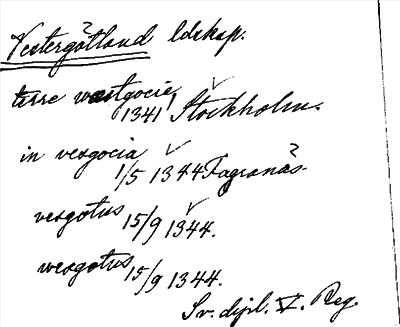 Vestergötland ldskap.
terre westgocie 1341 Stockholm.
in vesgocia 1/5 1344 Fagranäs
vesgotus 15/9 1344.
wesgotus 15/9 1344.
Sv. dipl. V. Reg.